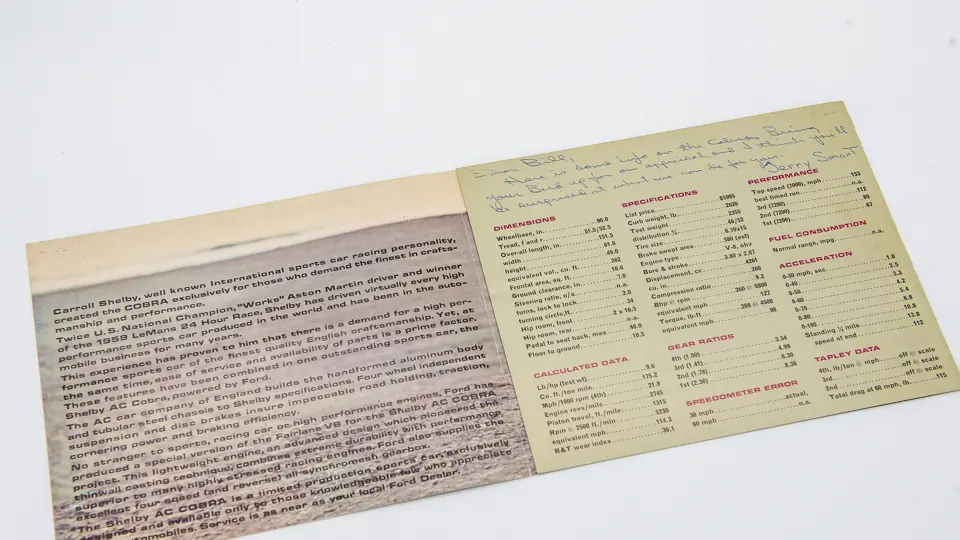 Carroll Shelby, well known International sports car racing personality,
created the COBRA exclusively for those who demand the finest in crafts-
manship and performance.
Twice U.S. National Champion, "Works" Aston Martin driver and winner
of the 1959 LeMans 24 Hour Race, Shelby has driven virtually every high
performance sports car produced in the world and has been in the auto-
mobile business for many years.
This experience has proven to him that there is a demand for a high per-
formance sports car of the finest quality English craftsmanship. Yet, at
the same time, ease of service and availability of parts is a prime factor.
These features have been combined in one outstanding sports car, the
Shelby AC Cobra, powered by Ford.
The AC car company of England builds the handformed aluminum body
and tubular steel chassis to Shelby specifications. Four wheel independent
suspension and disc brakes insure impeccable road holding, traction,
cornering power and braking efficiency.
No stranger to sports, racing car or high performance engines, Ford has
produced a special version of the Fairlane V8 for the Shelby AC COBRA
project. This lightweight engine, an advanced design which pioneered the
thinwall casting technique, combines extreme durability with performance
superior to many highly stressed racing engines. Ford also supplies the
excellent four speed (and reverse) all-synchromesh gearbox.
The Shelby AC COBRA is a limited production sports car, exclusively
designed and available only to those knowledgeable few who appreciate
automobiles. Service is as near as your local Ford Dealer.
Dear Bill,
Here is some info on the Cobras. Bring
your Bird up for an appraisal and I think you'll
be surprised at what we can do for you.
Jerry Smart
DIMENSIONS
Wheelbase, in. 90.0
Tread, f and r. 51.5/52.5
Over-all length, in. 151.5
width 61.0
height 49.0
equivalent vol., cu. ft. 262
Frontal area, sq. ft. 16.6
Ground clearance, in. 7.0
Steering ratio, o/a n.a.
turns, lock to lock 2.0
turning circle, ft. 34
Hip room, front 2 x 16.5
Hip room, rear n.a.
Pedal to seat back, max 40.0
Floor to ground 10.5
CALCULATED DATA
Lb/hp (test wt) 9.6
Cu. ft./ton mile 175.2
Mph/1000 rpm (4th) 21.8
Engine revs/mile 2745
Piston travel, ft./mile 1315
Rpm @ 2500 ft./min 5230
equivalent mph 114.3
R&T wear index 36.1
SPECIFICATIONS
List price $5995
Curb weight, lb. 2020
Test weight 2355
distribution % 48/52
Tire size 6.70x15
Brake swept area 580 (est)
Engine type V-8, ohv
Bore & stroke 3.80 x 2.87
Displacement, cc 4261
cu. in. 260
Compression ratio 9.2
Bhp @ rpm 260 @ 5800
equivalent mph 127
Torque, lb-ft 269 @ 4500
equivalent mph 98
GEAR RATIOS
4th (1.00) 3.54
3rd (1.41) 4.99
2nd (1.78) 6.30
1st (2.36) 8.36
SPEEDOMETER ERROR
30 mph actual,
60 mph n.a.
PERFORMANCE
Top speed (7000), mph 153
best timed run n.a.
3rd (7200) 112
2nd (7200) 89
1st (7200) 67
FUEL CONSUMPTION
Normal range, mpg n.a.
ACCELERATION
0-30 mph, sec. 1.8
0-40 2.5
0-50 3.3
0-60 4.2
0-70 5.4
0-80 6.8
0-100 10.8
Standing ¼ mile 13.8
speed at end 112
TAPLEY DATA
4th, lb/ton @ mph off @ scale
3rd off @ scale
2nd off @ scale
Total drag at 60 mph, lb. 115